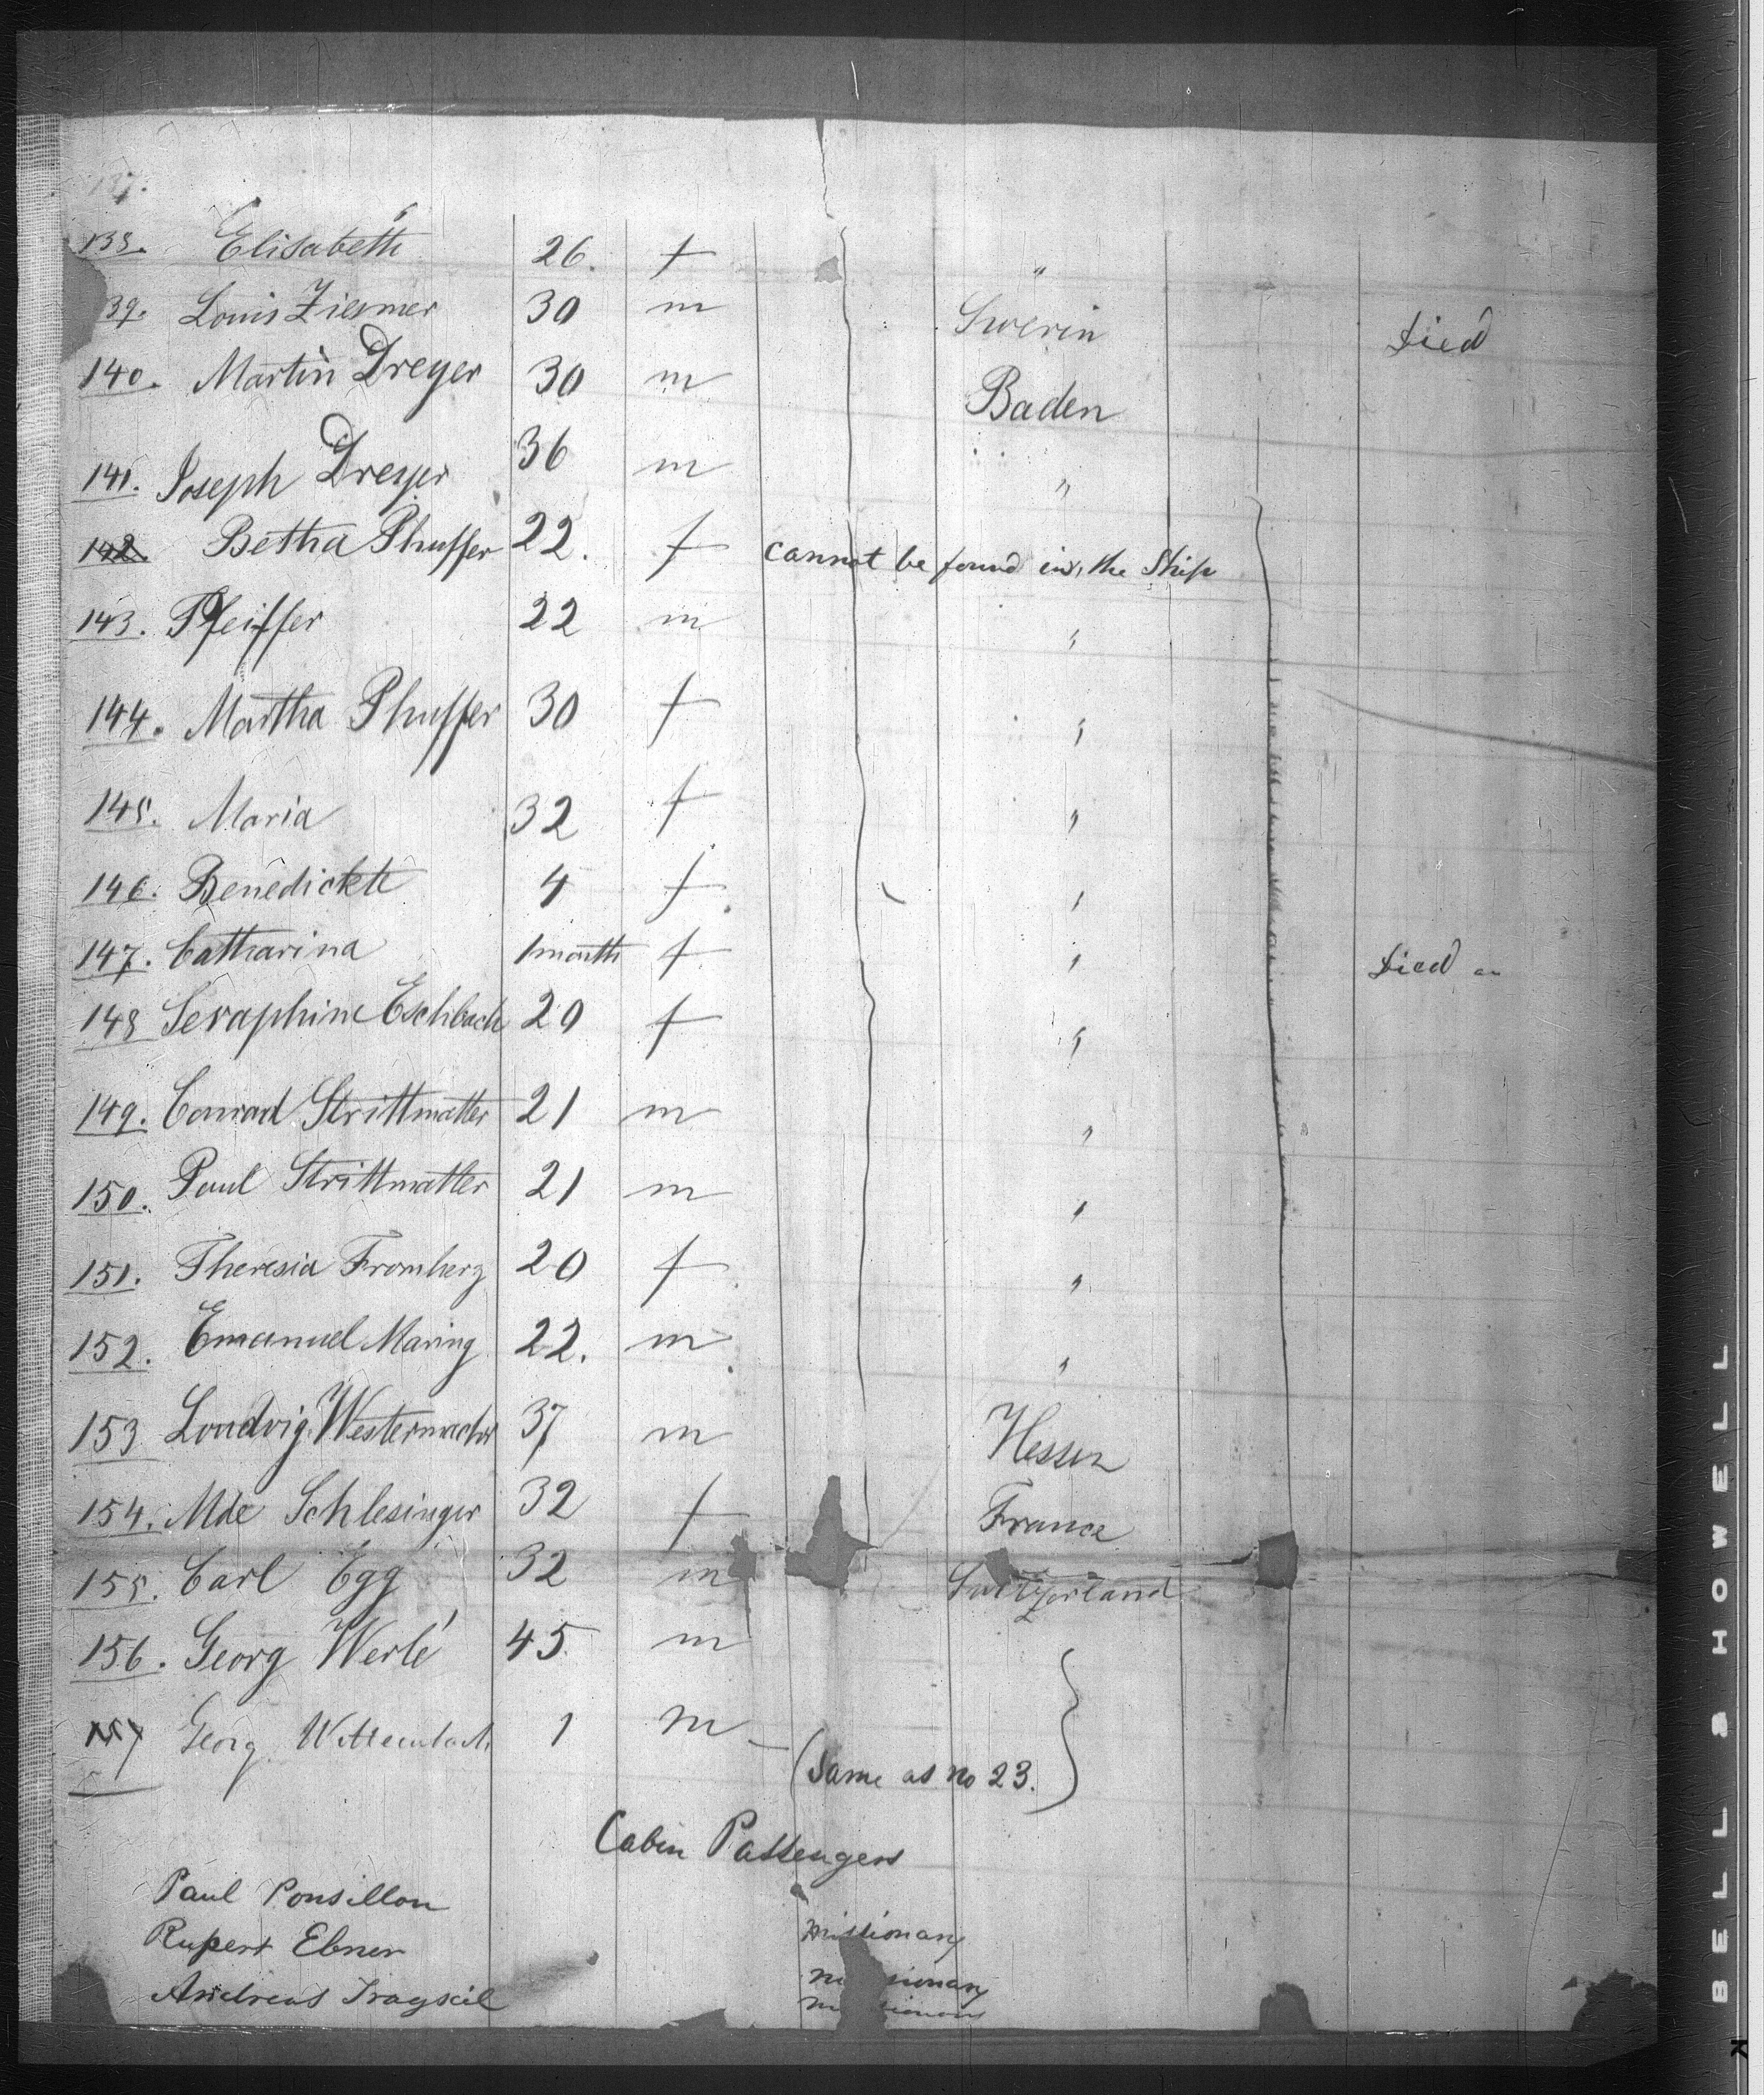 137.
138. Elisabeth 26. f "
39. Louis Ziesmer 30 m Swerin Died
140. Martin Dreyer 30 m Baden
141. Joseph Dreyer 36 m "
142. Betha Phuffer 22. f cannot be found in the Ship
143. Pfeiffer 22 m "
144. Martha Phuffer 30 f "
145. Maria 32 f "
146. Benedickte 4 f "
147. Catharina 1 month f " Died
148 Seraphine Eschbach 20 f "
149. Conrad Strittmatter 21 m "
150. Paul Strittmatter 21 m "
151. Theresia Fromherz 20 f "
152. Emanuel Maring 22. m "
153 Loudvig Westermacher 37 m Hessen
154. Mde Schlesinger 32 f France
155. Carl Egg 32 m Switzerland
156. Georg Werlé 45 m
157 Georg 1 m
(Same as no 23.
Cabin Passengers
Paul Ponsillon
Rupert Ebner missionary
Andreas missionary
BELL & HOWELL